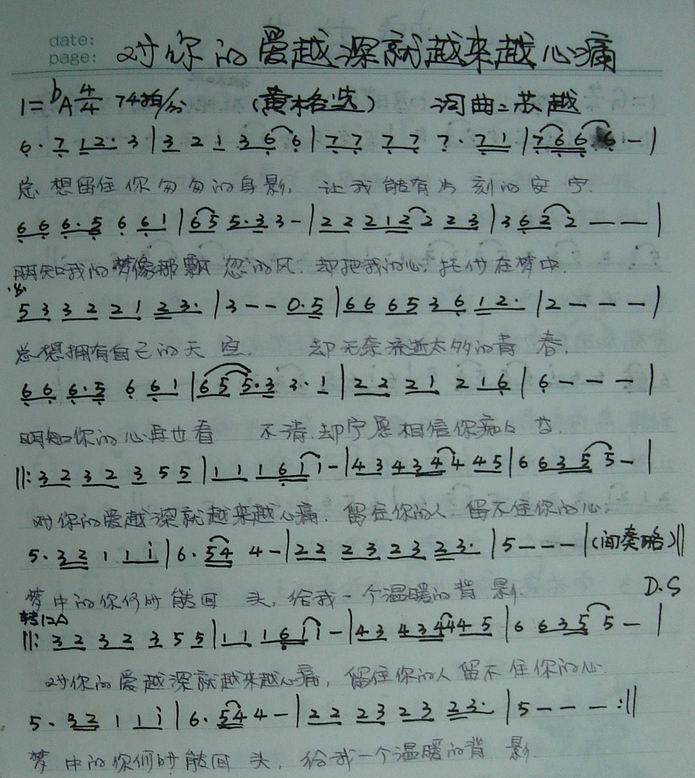 date:
page: 对你的爱越深就越来越心痛
1=bA 4/4 74拍/分 (黄格选) 词曲:苏越
6· 7 12· 3 | 3 2 1 3 6 6 | 77 77 7· 71 | 7 6 6 6 - |
总想留住你匆匆的身影, 让我能有片刻的安宁.
66 6·5 6 61 | 65 5·3 3 - | 22 212 2 23 | 3 6 2 2 - - |
明知我的梦像那飘忽的风, 却把我的心托付在梦中.
53 32 21 23· | 3 - - 0·5 | 66 65 36 12· | 2 - - - |
总想拥有自己的天空, 却无奈流逝太多的青春,
66 6·5 6 61 | 65 5·3 3· 1 | 22 21 2 16 | 6 - - - |
明知你的心再也看不清,却宁愿相信你
||: 32 32 3 55 | 11 1 6 1 1 - | 43 43 4 4 45 | 6 6 3 5 5 - |
对你的爱越深就越来越心痛, 留住你的人留不住你的心;
5· 32 1 1i | 6· 54 4 - | 22 23 23 23· | 5 - - - | (间奏略) ||
梦中的你何时能回头, 给我一个温暖的背影. D.S
转1=A
||: 32 32 3 55 | 11 1 6 1 1 - | 43 43 4 4 4 5 | 6 6 3 5 5 - |
对你的爱越深就越来越心痛, 留住你的人留不住你的心
5· 32 1 1i | 6· 54 4 - | 22 23 23 23· | 5 - - - :||
梦中的你何时能回头, 给我一个温暖的背影.